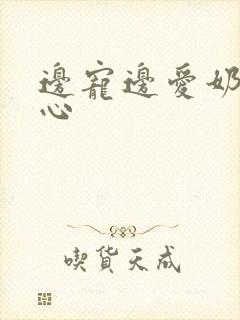 邊寵邊愛奶
心
喫貨天成